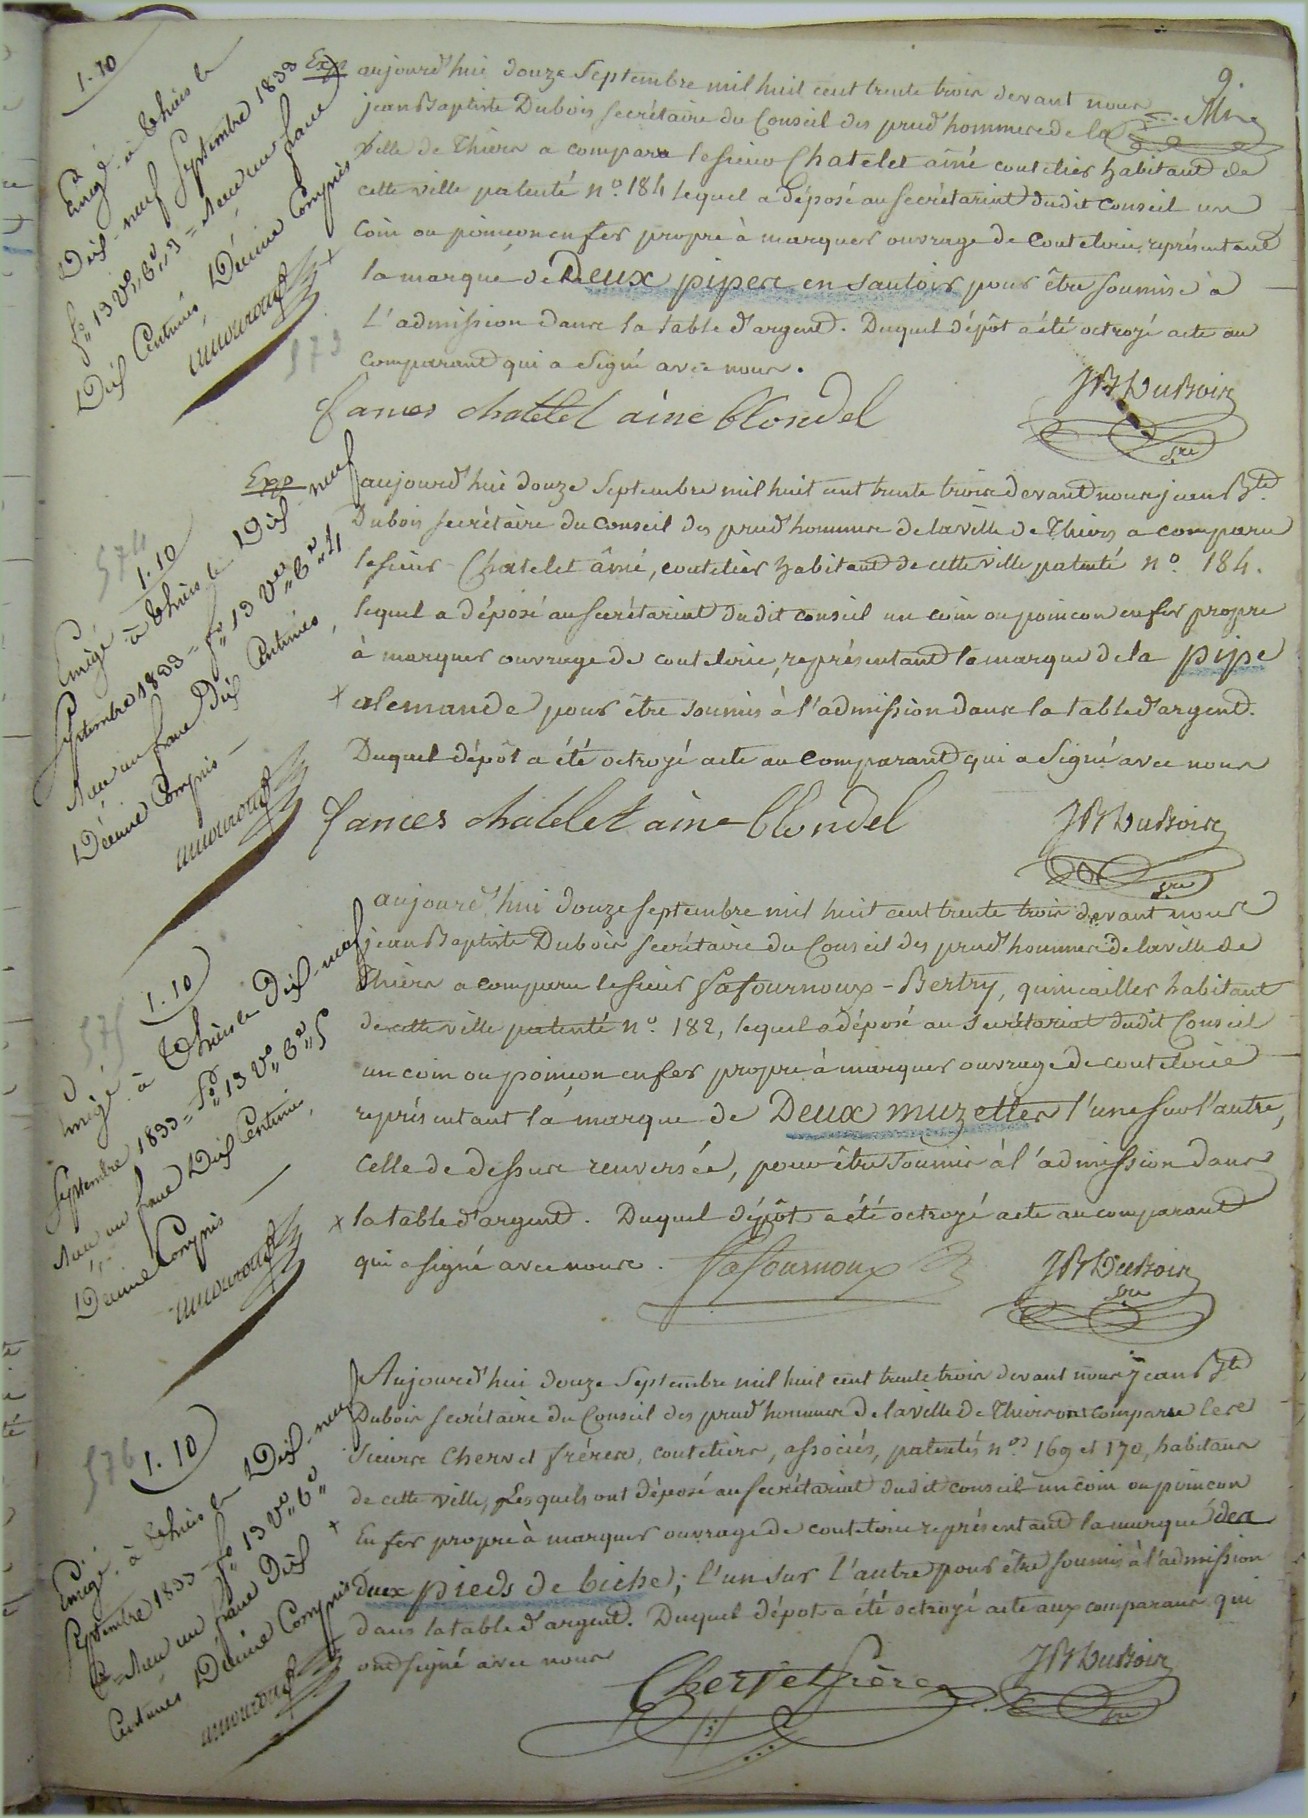 9.
1.10
Enrgé. à Thiers le
Dix-neuf Septembre 1833
fo 13 vo, Co 3 = Reçu un franc
Dix Centimes, Décime Compris
573
Exp
aujourd'hui douze Septembre mil huit cent trente trois devant nous
jean Baptiste Dubois secrétaire du Conseil des prud'hommes de la
ville de Thiers a comparu le sieur Chatelet aîné coutelier habitant de
cette ville patenté no. 184 lequel a déposé au secrétariat dudit conseil un
coin ou poinçon en fer propre à marquer ouvrage de coutelerie, représentant
la marque de Deux pipes en sautoir pour être soumise à
L'admission dans la table d'argent. Duquel dépôt a été octroyé acte au
comparant qui a signé avec nous.
chatelet aine Blondel
JB Dubois
sre
Exp
574
1.10
Enrégé à Thiers le Dix-neuf
Septembre 1833 = fo 13 vo Co 4
Reçu un franc Dix Centimes,
Décime Compris —
aujourd'hui douze Septembre mil huit cent trente trois devant nous jean Bte
Dubois secrétaire du Conseil des prud'hommes de la ville de Thiers a comparu
le sieur Chatelet âiné, coutelier habitant de cette ville patenté no. 184.
lequel a déposé au secrétariat dudit conseil un coin ou poincon en fer propre
à marquer ouvrage de coutelerie, représentant la marque de la pipe
x alemande pour être soumis à l'admission dans la table d'argent.
Duquel dépôt a été octroyé acte au comparant qui a signé avec nous
chatelet aine Blondel
JB Dubois
sre
575
1.10
Enrégé à Thiers le Dix-neuf
Septembre 1833 = fo 13 vo Co 5
Reçu un franc Dix Centimes,
Décime Compris —
aujourd'hui douze septembre mil huit cent trente trois devant nous
jean Baptiste Dubois secrétaire du Conseil des prud'hommes de la ville de
Thiers a comparu le sieur Lafournoux-Bertry, quincailler habitant
de cette ville patenté no. 182, lequel a déposé au secrétariat dudit Conseil
un coin ou poinçon en fer propre à marquer ouvrage de coutelerie
représentant la marque de Deux muzettes l'une sur l'autre,
celle de dessus renversée, pour être soumis à l'admission dans
x la table d'argent. Duquel dépôt a été octroyé acte au comparant
qui a signé avec nous.
Lafournoux
JB Dubois
sre
576
1.10
Enrégé à Thiers le Dix-neuf
Septembre 1833 = fo 13 vo Co
6 = Reçu un franc Dix
Centimes Décime Compris
Aujourd'hui douze Septembre mil huit cent trente trois devant nous jean Bte
Dubois secrétaire du Conseil des prud'hommes de la ville de Thiers ont comparu les
sieurs Chervet frères, couteliers, associés, patentés nos. 169 et 170, habitans
de cette ville, Lesquels ont déposé au secrétariat dudit conseil un coin ou poincon
x En fer propre à marquer ouvrage de coutelerie représentant la marque des
duex pieds de biche; l'un sur l'autre pour être soumis à l'admission
dans la table d'argent. Duquel dépot a été octroyé acte aux comparans qui
ont signé avec nous
Chervet frères
JB Dubois
sre